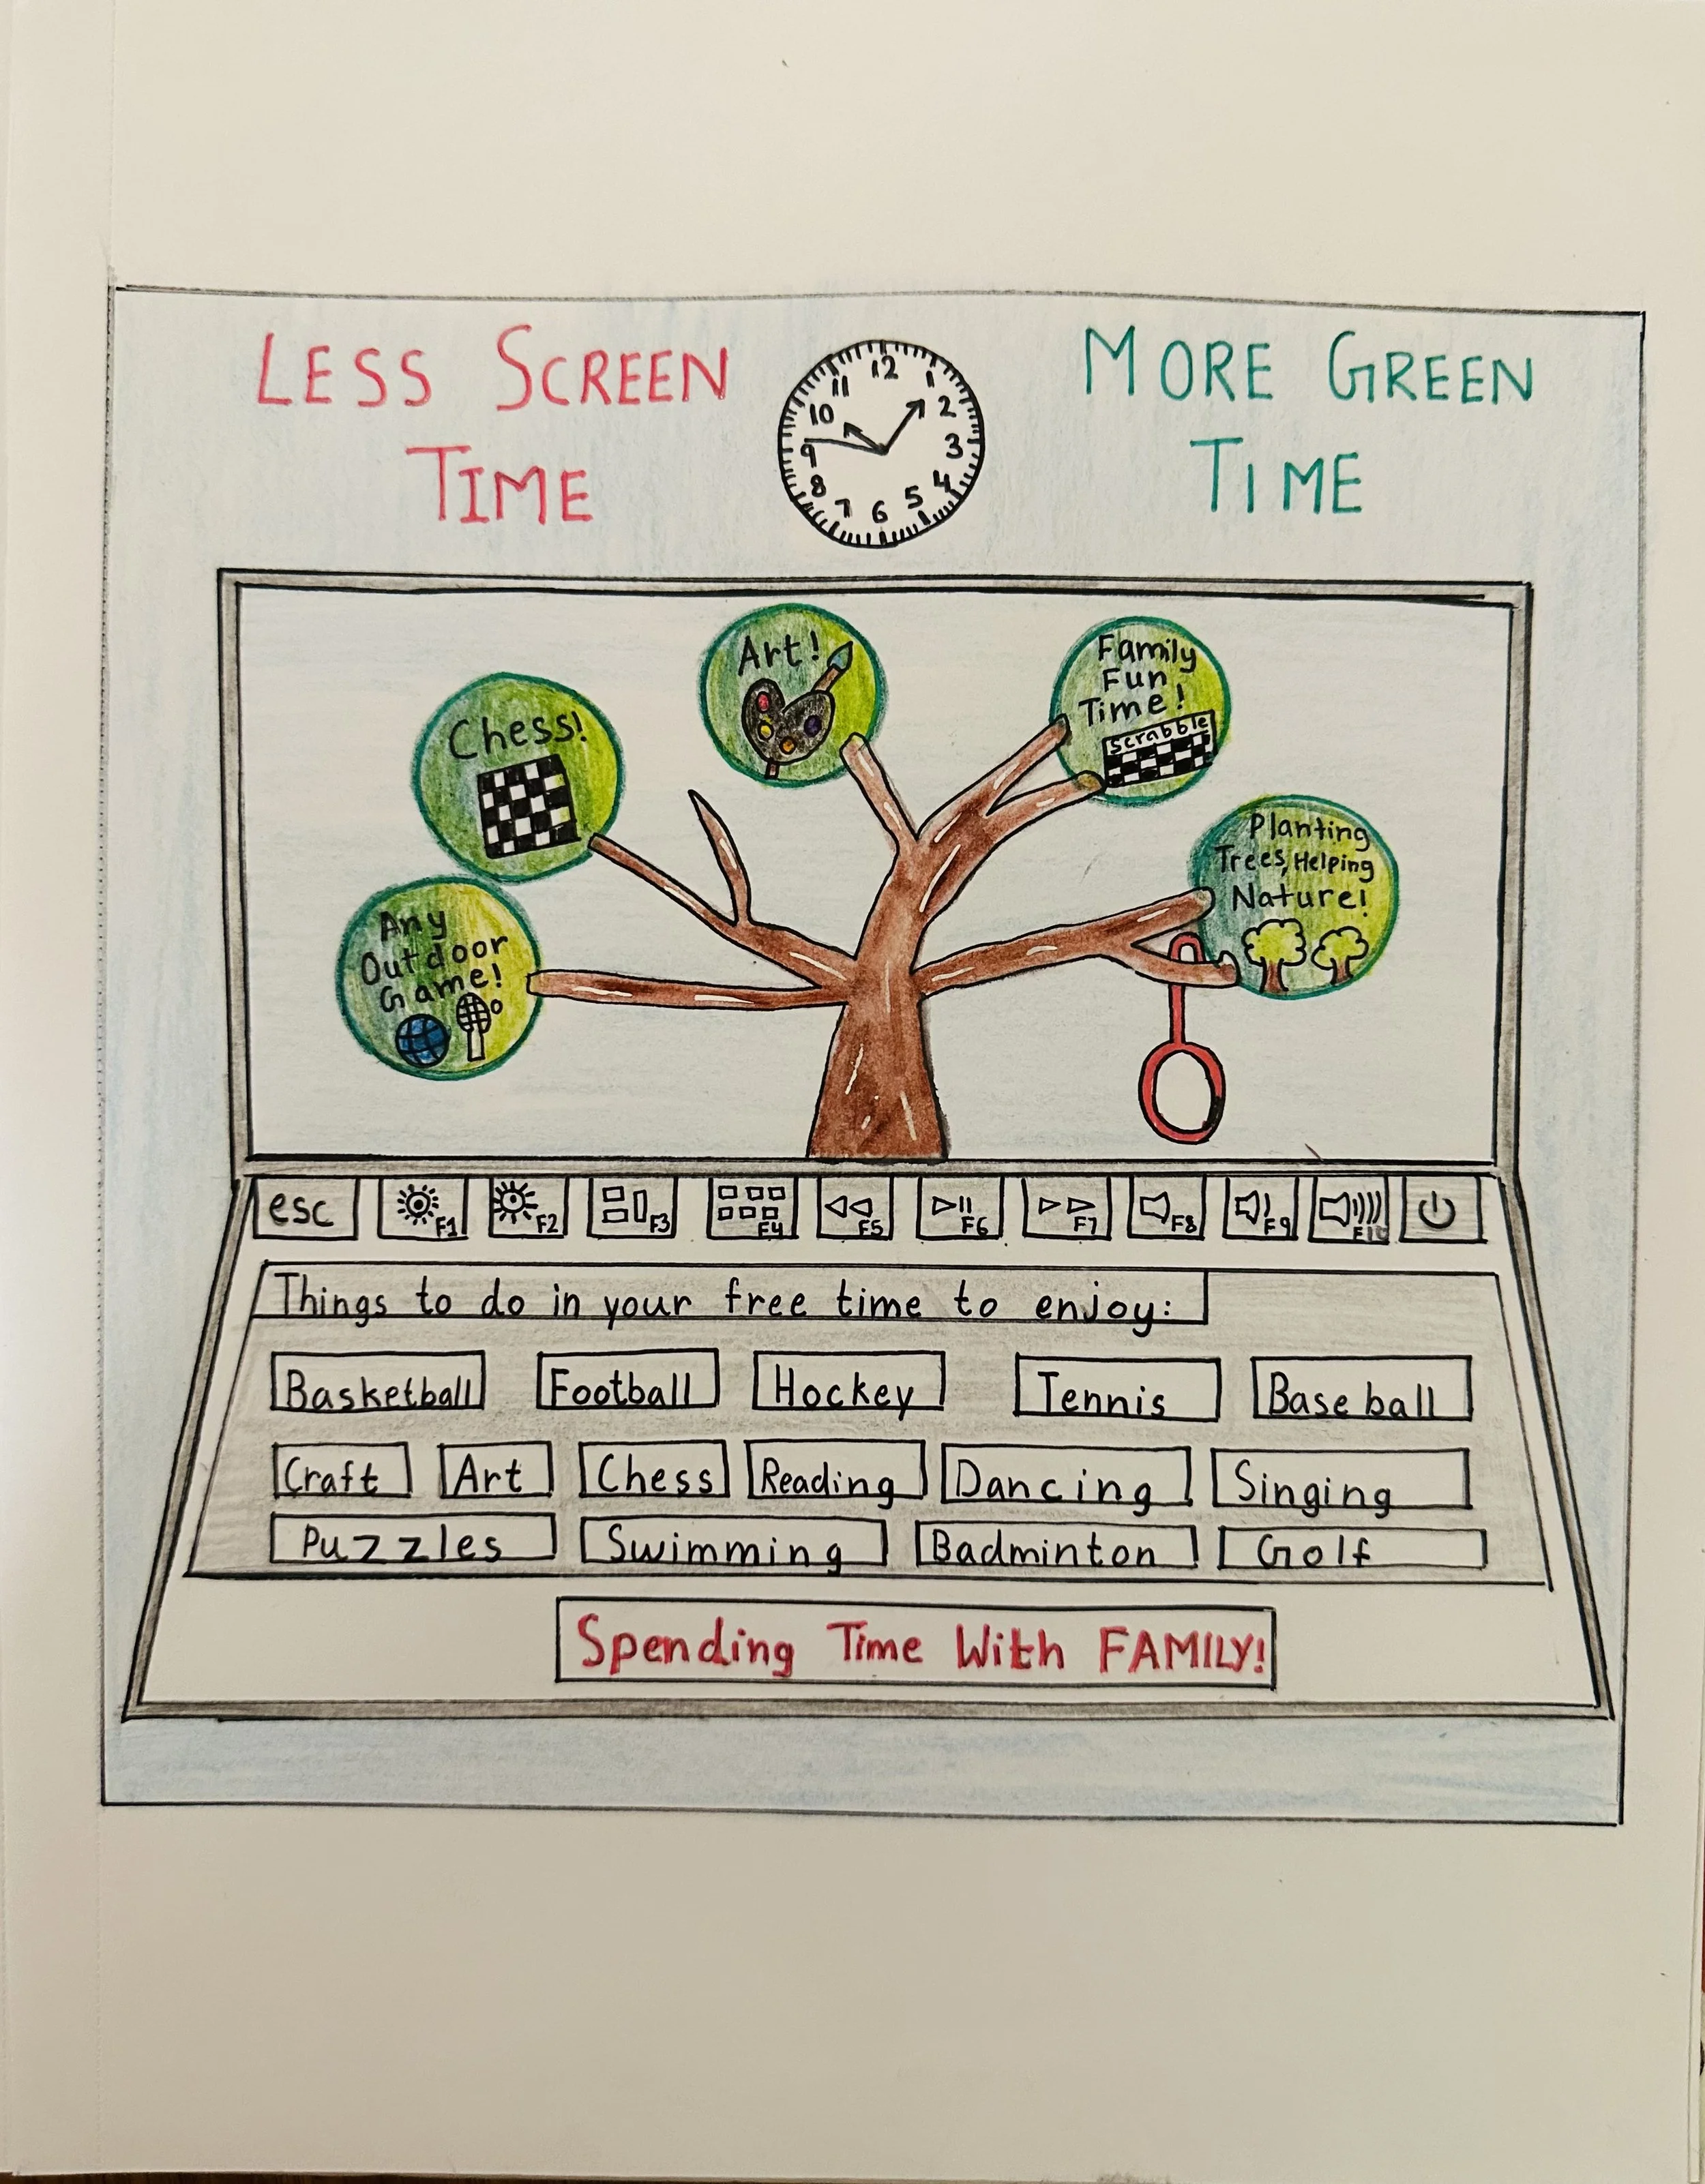 LESS SCREEN
TIME
12
1
2
3
4
5
6
7
8
9
10
11
MORE GREEN
TIME
Chess!
Art!
Family
Fun
Time!
Scrabble
Planting
Trees, Helping
Nature!
Any
Outdoor
Game!
esc F1 F2 F3 F4 F5 F6 F7 F8 F9 F10
Things to do in your free time to enjoy:
Basketball Football Hockey Tennis Baseball
Craft Art Chess Reading Dancing Singing
Puzzles Swimming Badminton Golf
Spending Time With FAMILY!